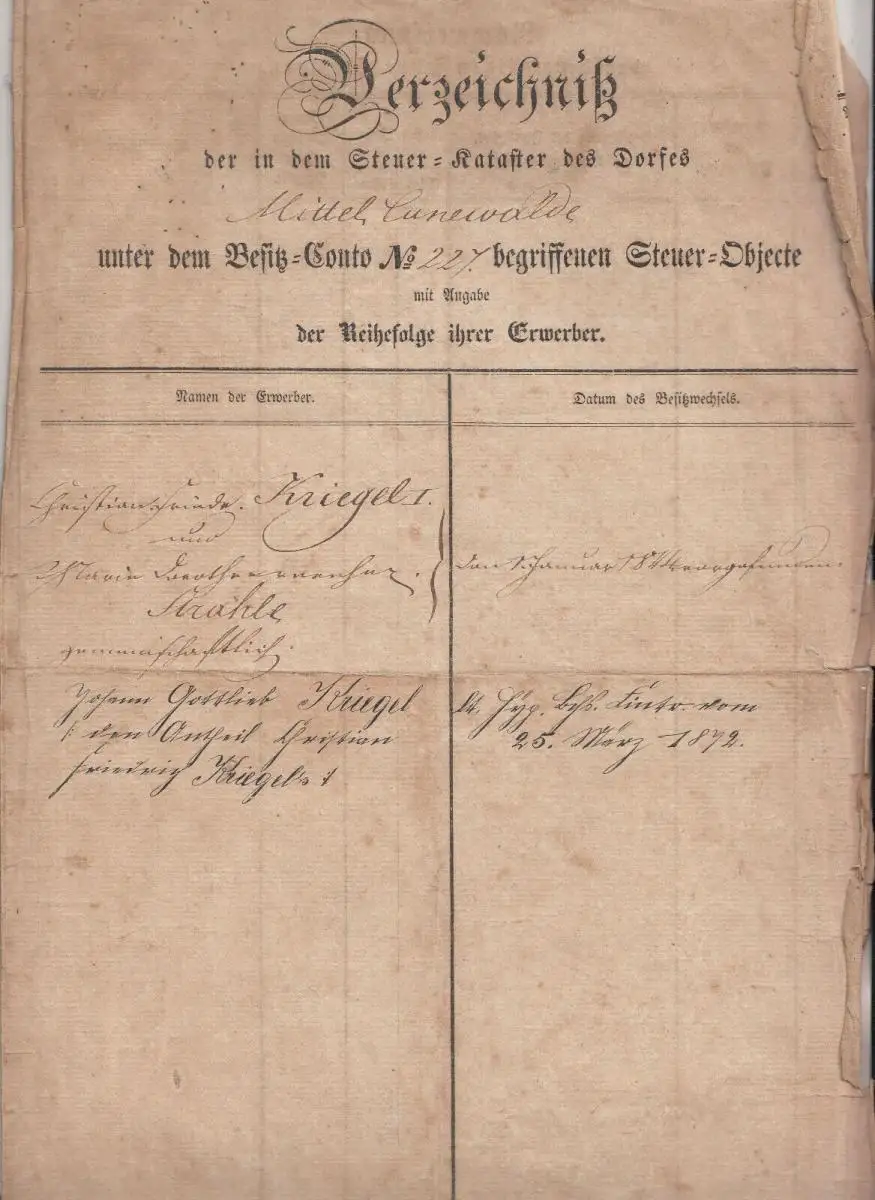 Verzeichniß
der in dem Steuer-Kataster des Dorfes
Mittel Cunewalde
unter dem Besitz-Conto No 227. begriffenen Steuer-Objecte
mit Angabe
der Reihefolge ihrer Erwerber.
Namen der Erwerber.
Datum des Besitzwechsels.
Christian Friedr. Kriegel I.
und
Marie Dorothee
Strähle
gemeinschaftlich.
den Januar 1844 vorgefunden.
Johann Gottlieb Kriegel
/: den Antheil Christian
Friedrich Kriegel's :/
lt. Hyp. Bchs. Eintr. vom
25. März 1872.